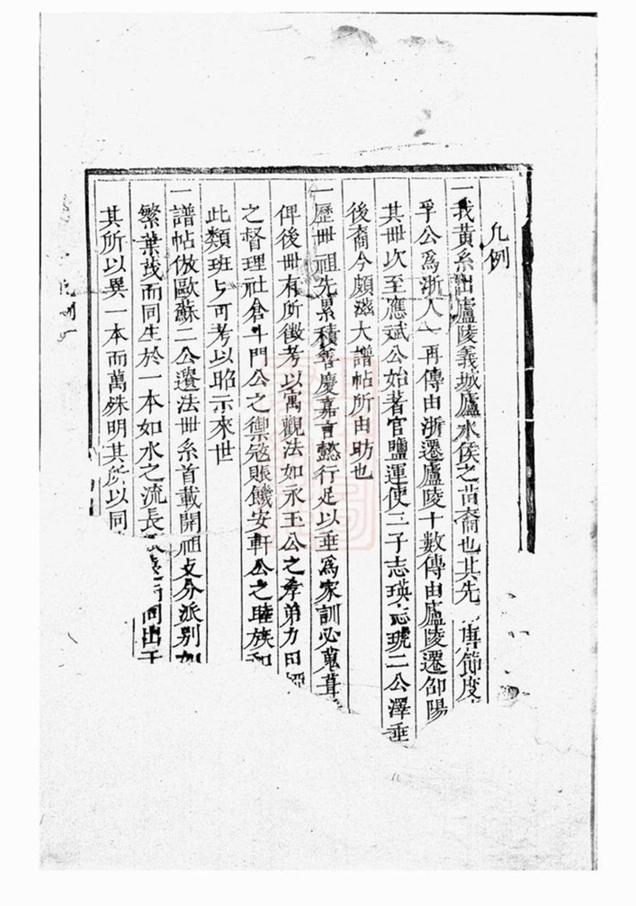 凡例
一我黃系出廬陵義城廬水侯之苗裔也其先唐節度
孚公爲浙人一再傳由浙遷廬陵十數傳由廬陵遷邵陽
其世次至應斌公始著官鹽運使二子志瑛志琥二公澤垂
後裔今頗淺大譜帖所由昉也
一歷世祖先累積善慶嘉言懿行足以垂爲家訓必蒐葺
俾後世有所徵考以寓觀法如永玉公之孝弟力田
之督理社倉斗門公之禦寇賑饑安軒公之睦族和
此類班班可考以昭示來世
一譜帖倣歐蘇二公遺法世系首載開祖支分派別如
繁葉茂而同生於一本如水之流長 同出于
其所以異一本而萬殊明其所以同